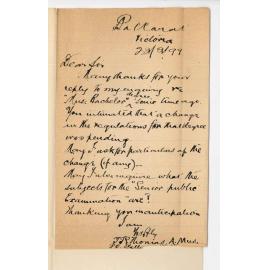 Ballarat
Victoria
Dear Sir
Many thanks for your
reply to my enquiry re
"Mus: Bachelor" some time ago.
degree
You intimated that a change
in the regulations for that degree
was pending
May I ask for particulars of the
change (if any) —
May I also enquire what the
subjects for the "Senior public
Examination" are?
Thanking you in anticipation
I am
Thomas, A. Mus.